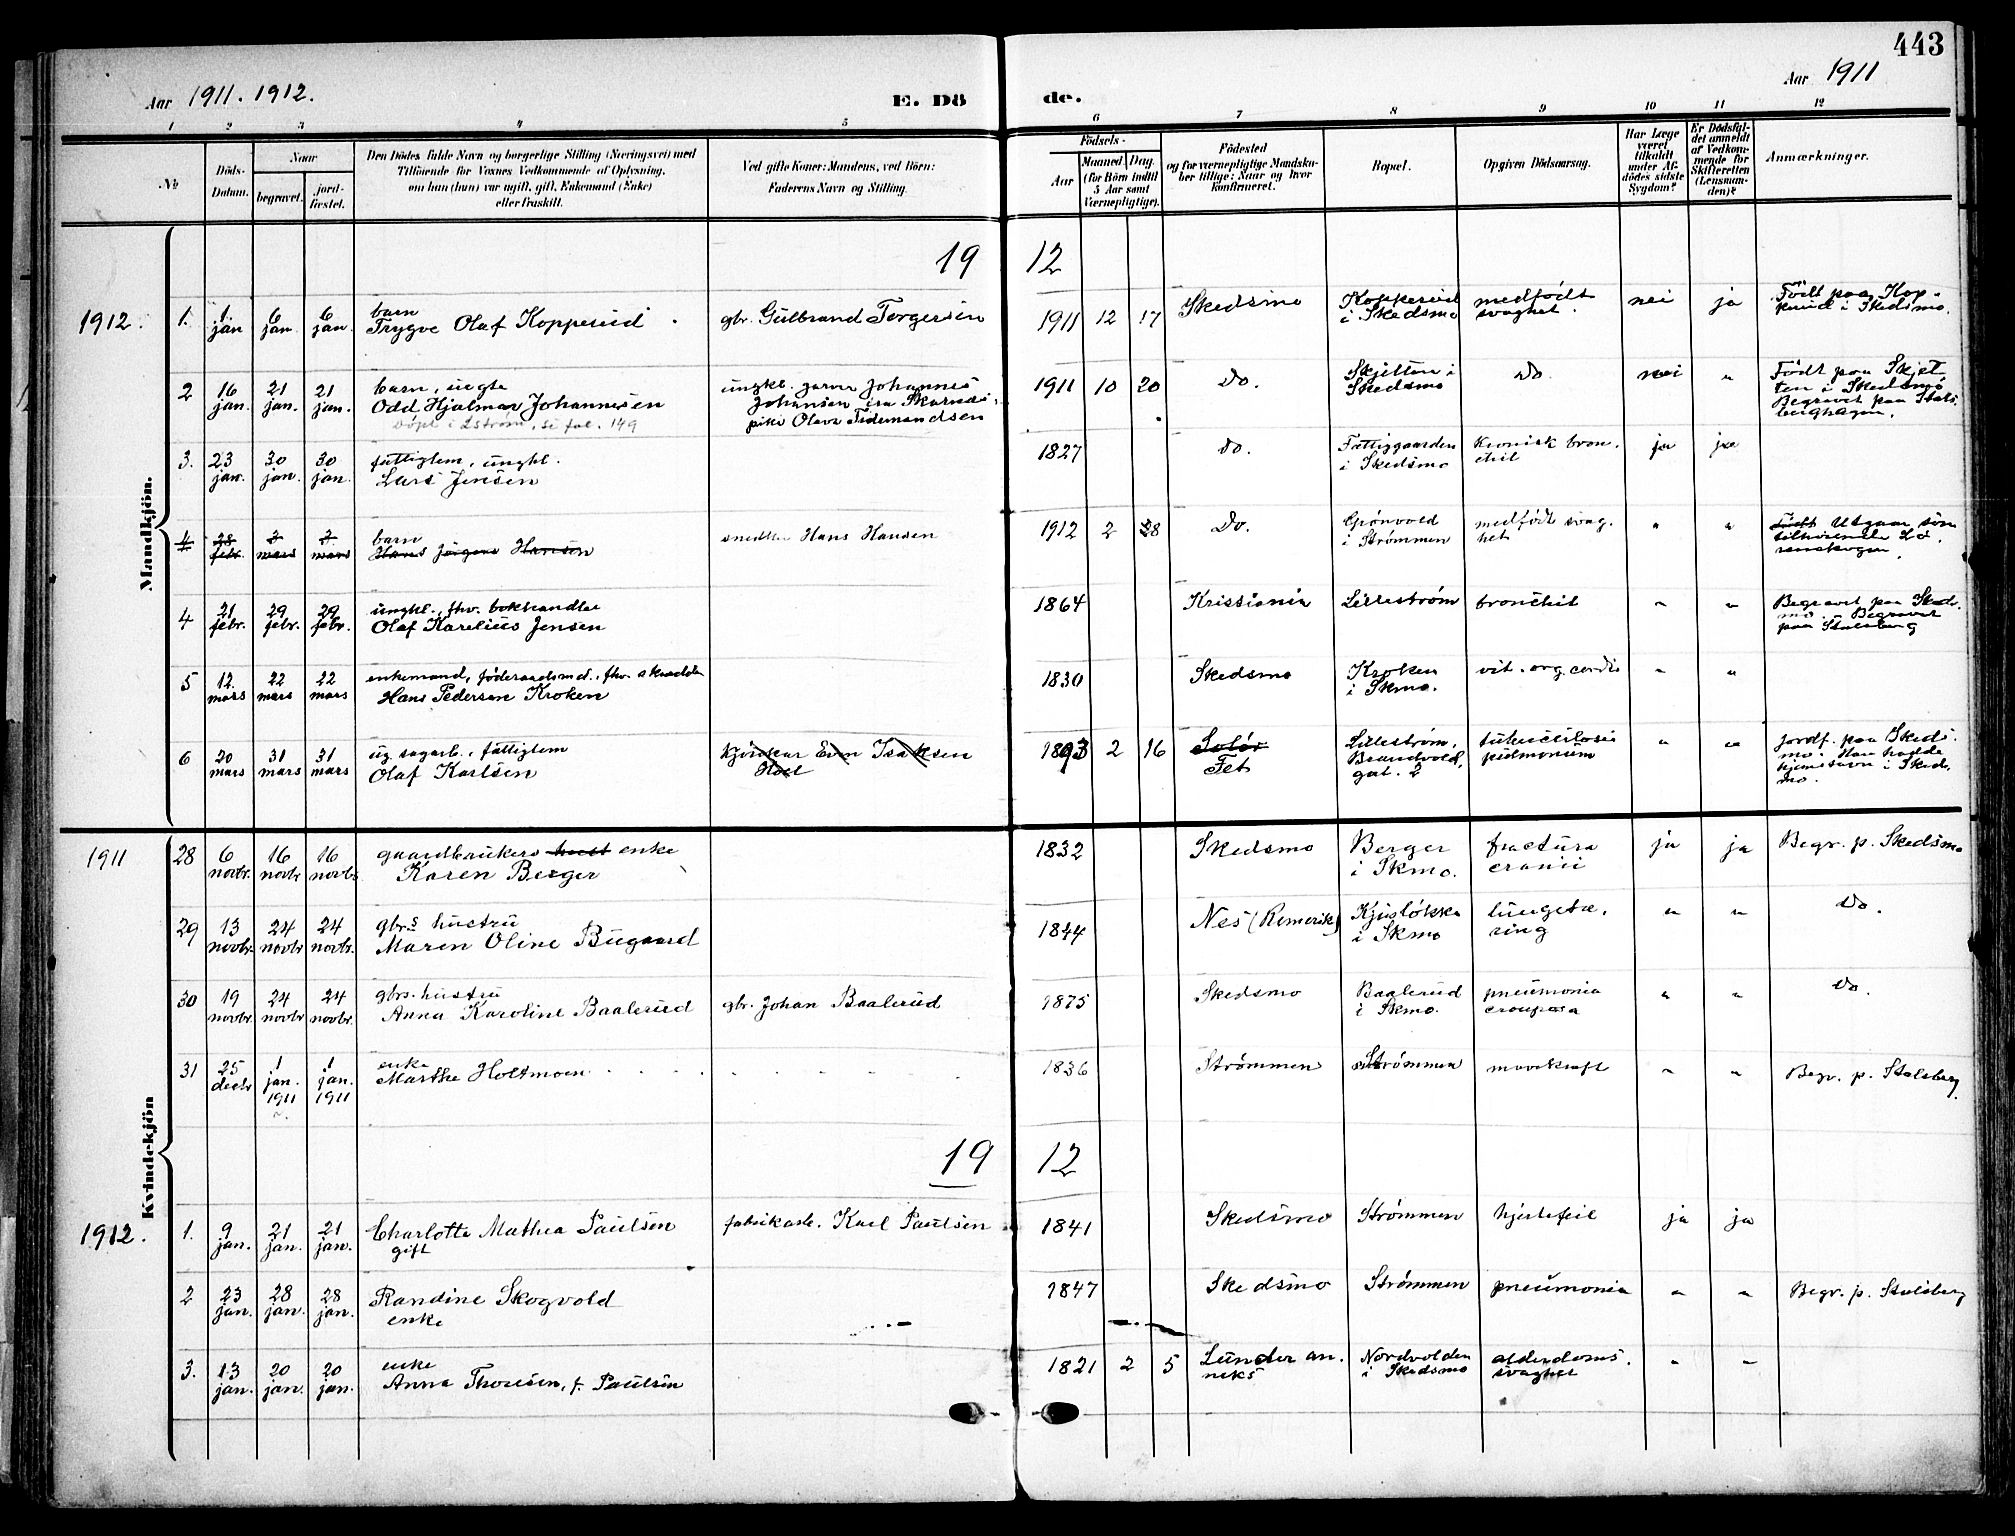 443
Aar 1911. 1912.
E. Dö
de.
Aar 1911
1 2 3 4 5 6 7 8 9 10 11 12
№
Döds-Datum.
Naar
begravet.
jord-fæstet.
Den Dödes fulde Navn og borgerlige Stilling (Næringsvei) med
Tilföiende for Voxnes Vedkommende af Oplysning,
om han (hun) var ugift, gift, Enkemand (Enke)
eller fraskilt.
Ved gifte Koner: Mandens, ved Börn:
Faderens Navn og Stilling.
Födsels-
Aar
Maaned, Dag.
(for Börn indtil
5 Aar samt
Værnepligtige).
Födested
og for værnepligtige Mandska-
ber tillige: Naar og hvor
konfirmeret.
Bopæl.
Opgiven Dödsaarsag.
Har Læge
været
tilkaldt
under Af-
dödes sidste
Sygdom?
Er Dödsfal-
det anmeldt
af Vedkom-
mende for
Skifteretten
(Lensman-
den)?
Anmærkninger.
Mandkjön.
19 12
1912. 1. 1 jan 6 jan. 6 jan. barn
Trygve Olaf Kopperud gbr. Gulbrand Torgersen 1911 12 17 Skedsmo Kopperud i Skedsmo medfødt svaghet. nei ja Født paa Kop-
perud i Skedsmo.
2 16 jan. 21 jan. 21 jan. barn, uegte
Odd Hjalmar Johannesen
Døpt i Lstrøm, se fol. 149
ungkl. Johannes
Johansen
pike Olava Tidemandsen 1911 10 20 Do. Skjetten i Skedsmo Do. nei " Født paa Skjet
ten i Skedsmo
Begravet paa Stals
berghagen.
3. 23 jan. 30 jan. 30 jan. fattiglem, ungkl.
Lars Jensen 1827 Do. Fattiggaarden i Skedsmo kronisk bron.
chit ja ja
4 28 febr. 3 mars 3 mars barn
Hans Jørgen Hansen snedker Hans Hansen 1912 2 28 Do. Grønvold i Strømmen medfødt svag.
het " " Født Utgaar som
tilhørende Lø
renskogen.
4 21 febr. 29 febr. 29 febr. ungkl., fhv. bokhandler
Olaf Karelius Jensen 1864 Kristiania Lilleström bronchit " " Begravet paa Skeds.
mo. Begravet
paa Stalsberg
5 12. mars 22 mars 22 mars enkemand, føderaadsmd., fhv. skrædder
Hans Pedersen Kroken 1830 Skedsmo Kroken i Skmo. vit. org. cordis " "
6 20 mars 31 mars 31 mars ug. sagarb., fattiglem
Olaf Karlsen Even Isaksen 1893 2 16 Solør
Fet Lilleström,
Brandvold.
gat. 2 tuberculosis
pulmonum " " Jordf. paa Skeds.
mo. Han hadde
hjemstavn i Skeds.
mo.
Kvindekjön
1911 28 6 novbr. 16 novbr. 16 novbr. gaardbrukers enke
Karen Berger 1832 Skedsmo Berger i Skmo. fractura
cranii ja ja Begr. p. Skedsmo
29 13 novbr. 24 novbr. 24 novbr. gbr.s hustru
Maren Oline Bugaard 1844 Nes (Romerik) Kjusløkka i Skmo lungetæ.
ring " " Do.
30 19 novbr. 24 novbr. 24 novbr. gbrs. hustru
Anna Karoline Baalerud gbr. Johan Baalerud 1875 Skedsmo Baalerud i Skmo. pneumonia
crouposa " " Do.
31 25 decbr 1 jan. 1911 1 jan. 1911 enke
Marthe Holtmoen 1836 Strømmen Strømmen marskraft " " Begr. p. Stalsberg.
19 12
1912. 1. 9 jan. 21 jan. 21 jan. Charlotte Mathea Paulsen
gift fabrikarb. Karl Paulsen 1841 Skedsmo Strømmen hjertefeil ja ja
2 23 jan. 28 jan. 28 jan. Randine Skogvold
enke 1847 Skedsmo Strømmen pneumonia " " Begr. p. Stalsberg
3. 13 jan. 20 jan. 20 jan. enke
Anna Thoresen, f. Paulsen 1821 2 5 Lunder an.
neks Nordvolden i Skedsmo alderdoms.
svaghet " "